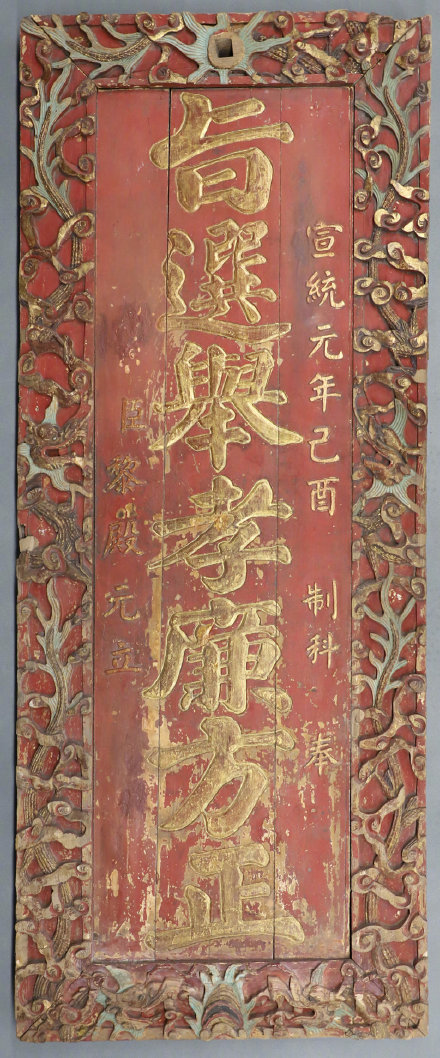 宣統元年己酉 制科 奉
旨選舉孝廉方正
臣黎殿元立